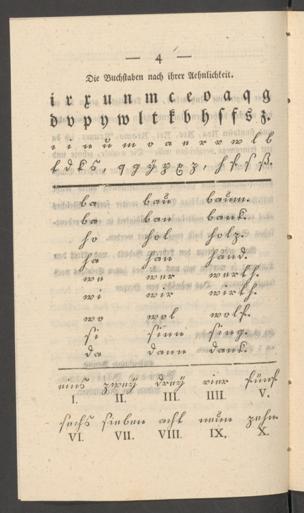 — 4 —
Die Buchstaben nach ihrer Aehnlichkeit.
i r x u n m c e o a q g
d v p y w l t k b h ſ f s z.
ba bau baum.
ba ban bank.
ho hol holz.
ha han hand.
we wer werth.
wi wir wirth.
wo wol wolf.
si sinn sing.
da dann dank.
eins zwey drey vier fünf
I. II. III. IIII. V.
sechs sieben acht neun zehn
VI. VII. VIII. IX. X.